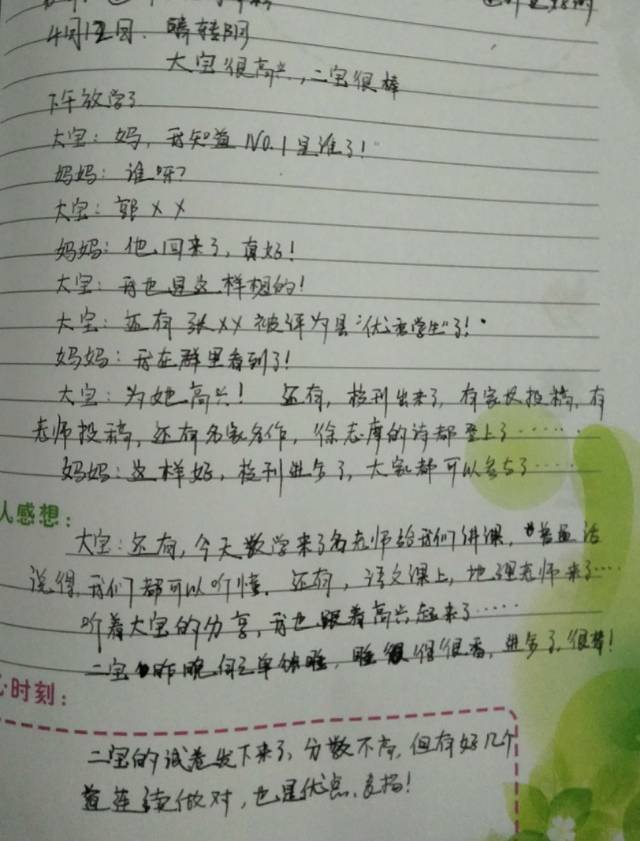 4月12日. 晴转阴
大宝很高兴,二宝很棒
下午放学了
大宝:妈,我知道 NO.1 是谁了!
妈妈:谁呀?
大宝:郭××
妈妈:他回来了,真好!
大宝:我也是这样想的!
大宝:还有张××被评为县“优秀学生”了!
妈妈:我在群里看到了!
大宝:为她高兴!还有,校刊出来了,有家长投稿,有
老师投稿,还有名家名作,徐志摩的诗都登上了……
妈妈:这样好,校刊进步了,大家都可以参与了……
人感想:
大宝:还有,今天数学来了名老师给我们讲课,普通话
说得我们都可以听懂.还有,语文课上,地理老师来了…
听着大宝的分享,我也跟着高兴起来了……
二宝昨晚 单独睡,睡得很香,进步了,很棒!
时刻:
二宝的试卷发下来了,分数不高,但有好几个
连续做对,也是优点,表扬!